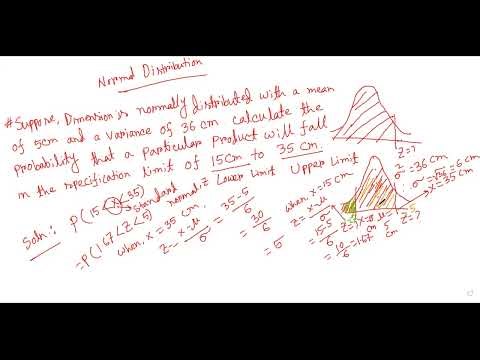 Normal Distribution
#Suppose, Dimension is normally distributed with a mean
of 5cm and a variance of 36 cm calculate the
probability that a particular product will fall
in the specification limit of 15cm to 35 cm.
Lower Limit Upper Limit
Soln: P(15<X<35)
standard
normal: Z
=P(1.67<Z<5)
when, x = 35 cm.
Z = x-μ/σ = 35-5/6
= 30/6
= 5
when, x=15 cm
Z = x-μ/σ
= 15-5/6
= 10/6 = 1.67
Z=?
σ² = 36 cm
σ = √36 = 6 cm
x = 35 cm
μ = 5 cm
Z=?